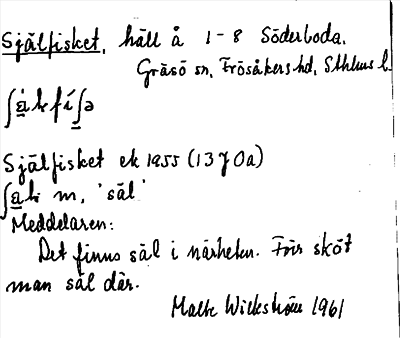 Själfisket, häll å 1-8 Söderboda.
Gräsö sn, Frösåkers hd, Sthlms l.
Själfisket ek 1955 (13 7 0a)
m, 'säl'
Meddelaren:
Det finns säl i närheten. Förr sköt
man säl där.
Malte Wickström 1961